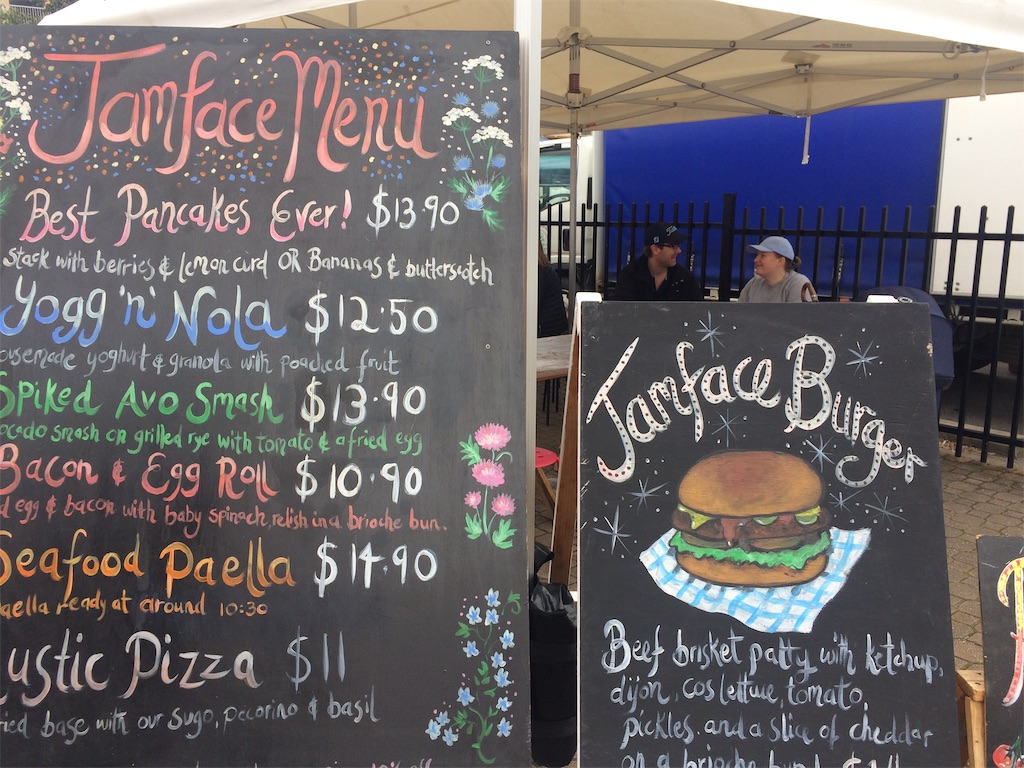 Jamface Menu
Best Pancakes Ever! $13.90
Stack with berries & lemon curd OR Bananas & butterscotch
Yogg 'n' Nola $12.50
ousemade yoghurt & granola with poached fruit
Spiked Avo Smash $13.90
ocado smash on grilled rye with tomato & a fried egg
Bacon & Egg Roll $10.90
d egg & bacon with baby spinach, relish in a brioche bun.
Seafood Paella $14.90
aella ready at around 10:30
ustic Pizza $11
ried base with our sugo, pecorino & basil
Jamface Burger
Beef brisket patty with ketchup,
dijon, cos lettuce, tomato,
pickles and a slice of cheddar
on a brioche bun!